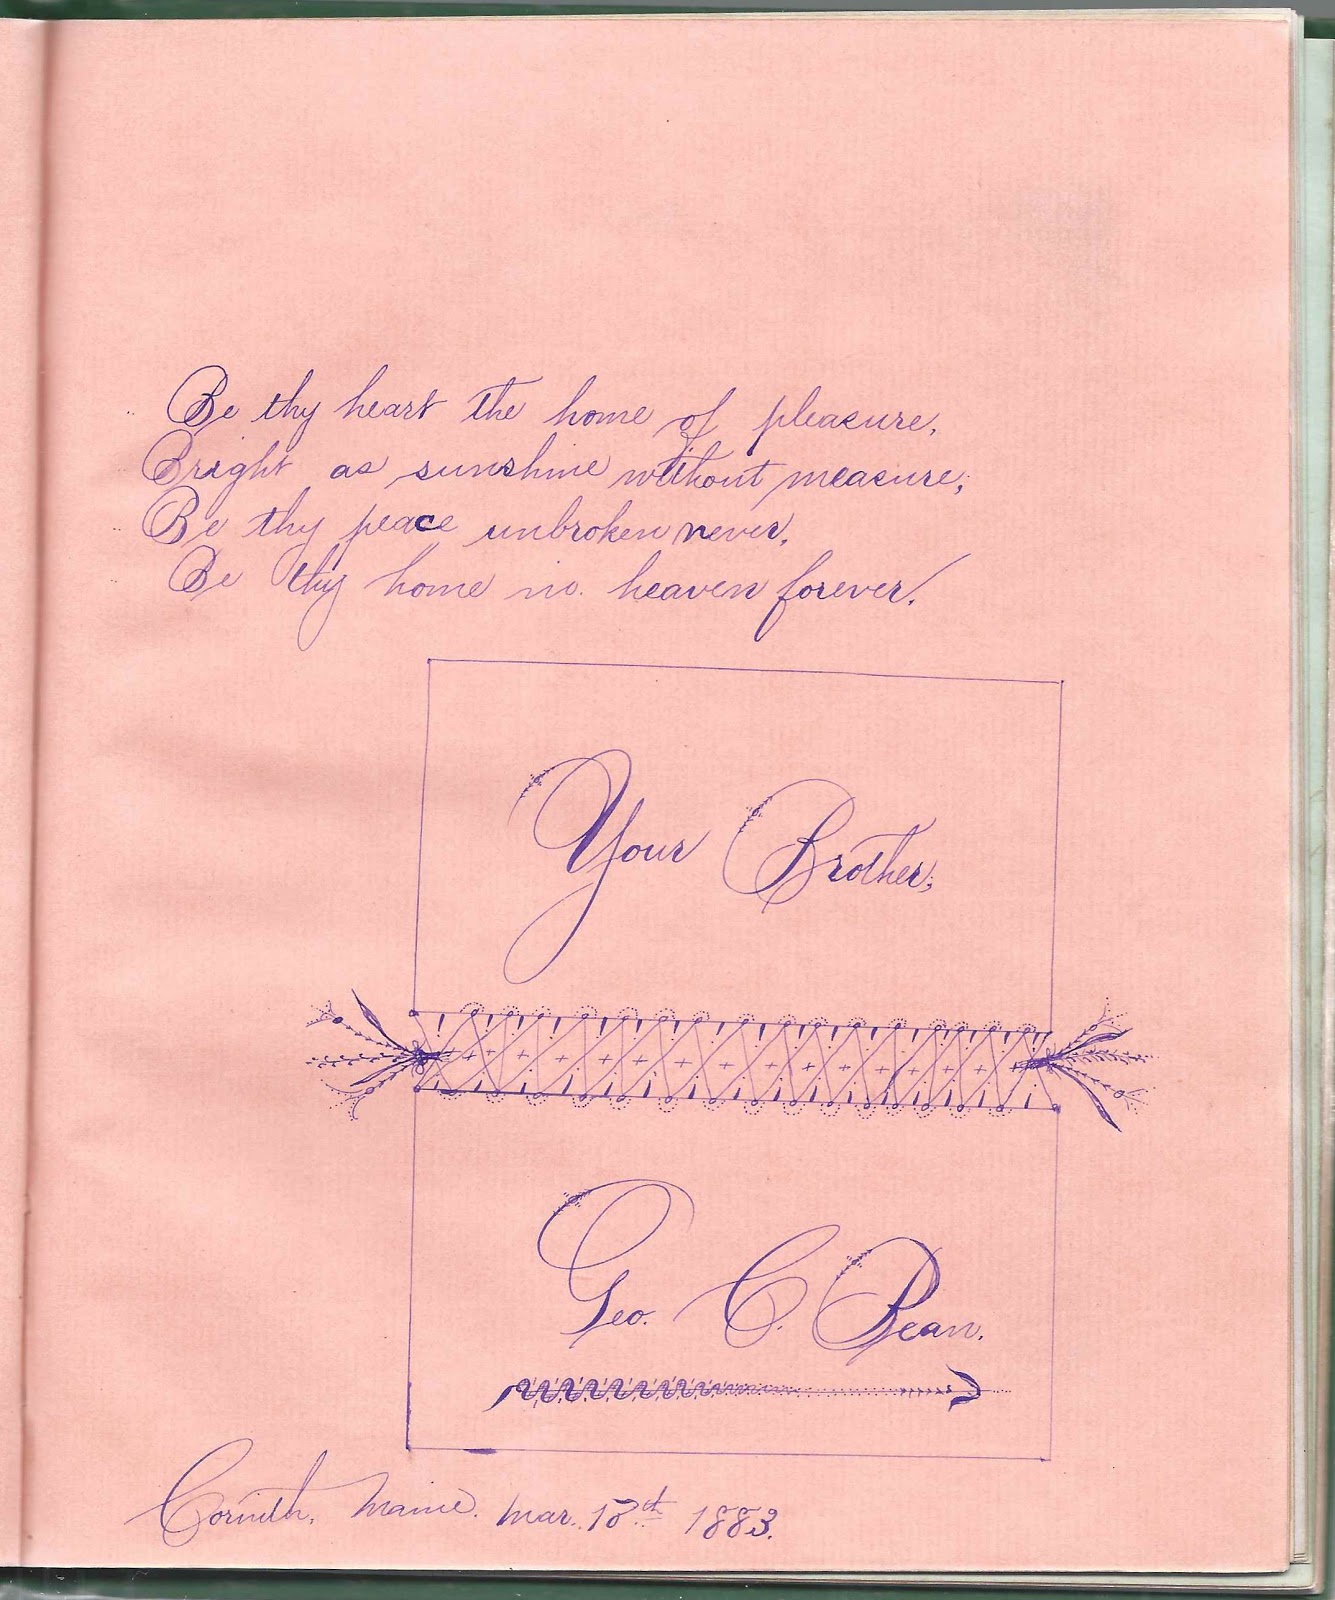 Be thy heart the home of pleasure,
Bright as sunshine without measure;
Be thy peace unbroken never,
Be thy home in heaven forever.
Your Brother,
Geo. C. Bean.
Corinth, Maine. Mar. 18th 1883.